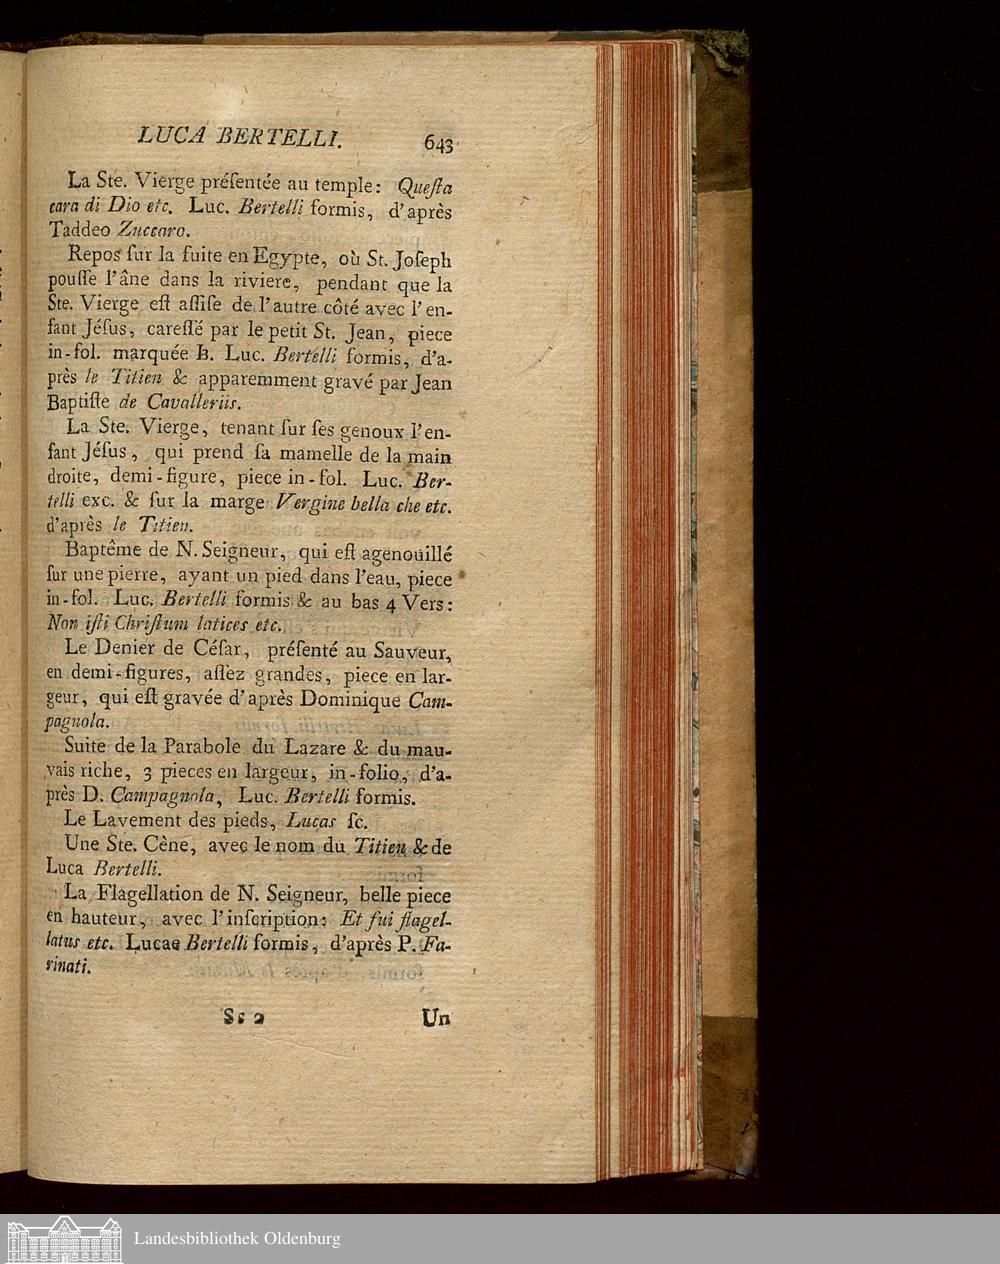 LUCA BERTELLI. 643
La Ste. Vierge préſentée au temple: Queſta
cara di Dio etc. Luc. Bertelli formis, d'après
Taddeo Zuccaro.
Repos ſur la fuite en Egypte, où St. Joſeph
pouſſe l'âne dans la riviere, pendant que la
Ste. Vierge eſt aſſiſe de l'autre côté avec l'en-
fant Jéſus, careſſé par le petit St. Jean, piece
in-fol. marquée B. Luc. Bertelli formis, d'a-
près le Titien & apparemment gravé par Jean
Baptiſte de Cavalleriis.
La Ste. Vierge, tenant ſur ſes genoux l'en-
fant Jéſus, qui prend ſa mamelle de la main
droite, demi-figure, piece in-fol. Luc. Ber-
telli exc. & ſur la marge Vergine bella che etc.
d'après le Titien.
Baptême de N. Seigneur, qui eſt agenouillé
ſur une pierre, ayant un pied dans l'eau, piece
in-fol. Luc. Bertelli formis & au bas 4 Vers:
Non iſti Chriſtum latices etc.
Le Denier de Céſar, préſenté au Sauveur,
en demi-figures, aſſez grandes, piece en lar-
geur, qui eſt gravée d'après Dominique Cam-
pagnola.
Suite de la Parabole du Lazare & du mau-
vais riche, 3 pieces en largeur, in-folio, d'a-
près D. Campagnola, Luc. Bertelli formis.
Le Lavement des pieds, Lucas ſc.
Une Ste. Cène, avec le nom du Titien & de
Luca Bertelli.
La Flagellation de N. Seigneur, belle piece
en hauteur, avec l'inſcription: Et fui flagel-
latus etc. Lucae Bertelli formis, d'après P. Fa-
rinati.
Ss 2 Un
Landesbibliothek Oldenburg